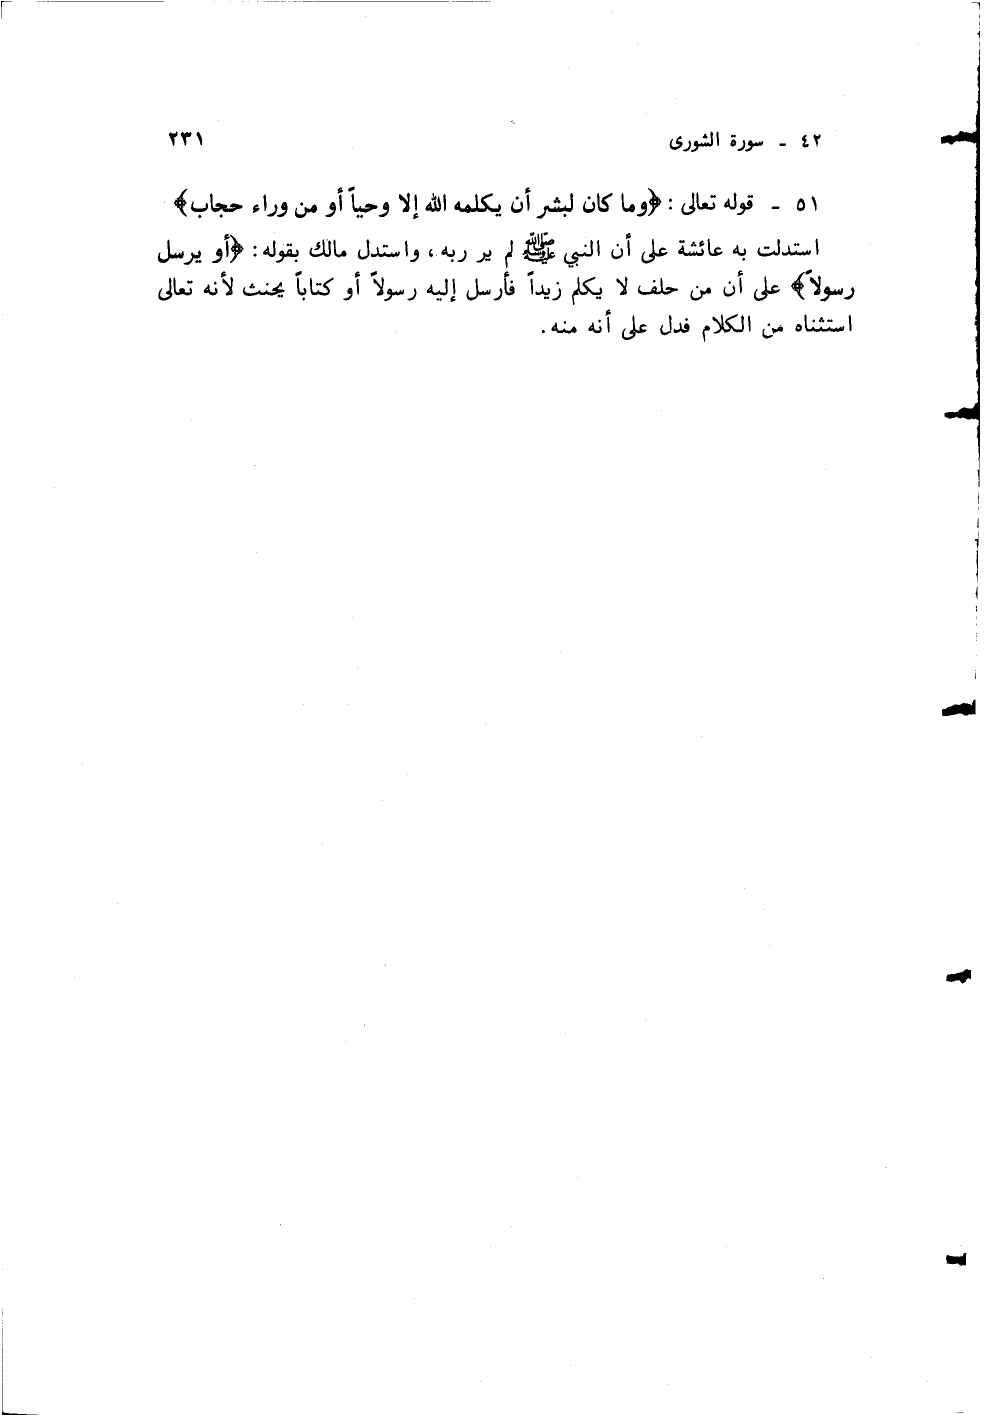 ٤٢ - سورة الشورى ٢٣١
٥١ - قوله تعالى : ﴿وما كان لبشر أن يكلمه الله إلا وحياً أو من وراء حجاب﴾
استدلت به عائشة على أن النبي ﷺ لم ير ربه ، واستدل مالك بقوله : ﴿أو يرسل
رسولاً﴾ على أن من حلف لا يكلم زيداً فأرسل إليه رسولاً أو كتاباً يحنث لأنه تعالى
استثناه من الكلام فدل على أنه منه .